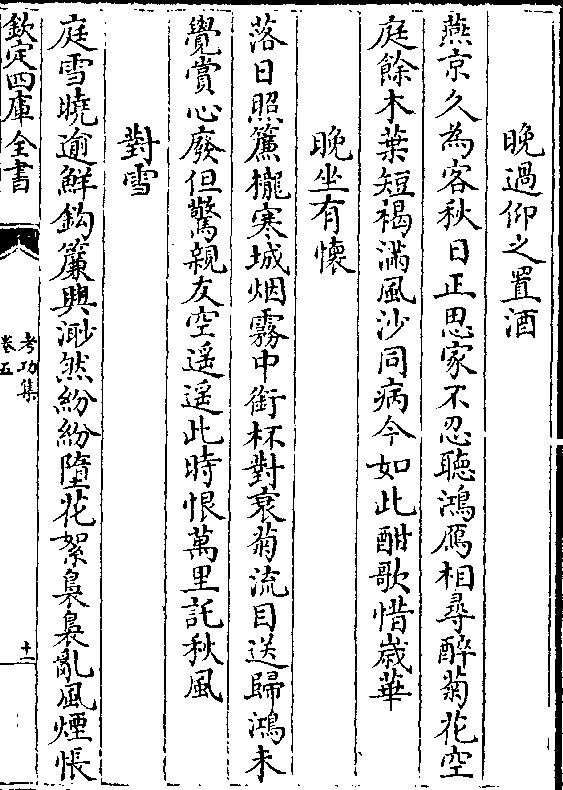 晚過仰之置酒
燕京久為客秋日正思家不忍聽鴻鴈相尋醉菊花空
庭餘木葉短褐滿風沙同病今如此酣歌惜歲華
晚坐有懷
落日照簾櫳寒城烟霧中銜杯對衰菊流目送歸鴻未
覺賞心廢但驚親友空遥遥此時恨萬里託秋風
對雪
庭雪曉逾鮮鈎簾興渺然紛紛墮花絮裊裊亂風煙悵
欽定四庫全書
考功集
卷五
十二